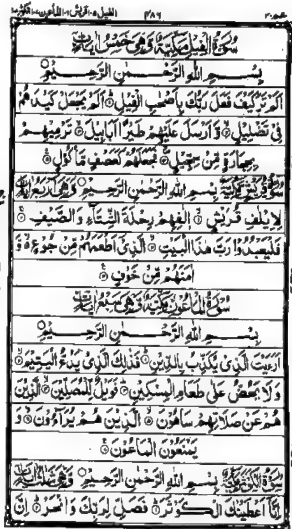 عم ٣٠ ٤٨٦ الفيل ١٠٥ قريش ١٠٦ الماعون ١٠٧ الكوثر ١٠٨
سُوْرَةُ الْفِيْلِ مَكِّيَّةٌ وَّهِيَ خَمْسُ اٰيَاتٍ
بِسْمِ اللّٰهِ الرَّحْمٰنِ الرَّحِيْمِ
اَلَمْ تَرَ كَيْفَ فَعَلَ رَبُّكَ بِاَصْحٰبِ الْفِيْلِ اَلَمْ يَجْعَلْ كَيْدَهُمْ
فِيْ تَضْلِيْلٍ وَّاَرْسَلَ عَلَيْهِمْ طَيْرًا اَبَابِيْلَ تَرْمِيْهِمْ
بِحِجَارَةٍ مِّنْ سِجِّيْلٍ فَجَعَلَهُمْ كَعَصْفٍ مَّاْكُوْلٍ
سُوْرَةُ قُرَيْشٍ مَكِّيَّةٌ بِسْمِ اللّٰهِ الرَّحْمٰنِ الرَّحِيْمِ وَّهِيَ اَرْبَعُ اٰيَاتٍ
لِاِيْلٰفِ قُرَيْشٍ اٖلٰفِهِمْ رِحْلَةَ الشِّتَآءِ وَالصَّيْفِ
فَلْيَعْبُدُوْا رَبَّ هٰذَا الْبَيْتِ الَّذِيْٓ اَطْعَمَهُمْ مِّنْ جُوْعٍ وَّ
اٰمَنَهُمْ مِّنْ خَوْفٍ
سُوْرَةُ الْمَاعُوْنِ مَكِّيَّةٌ وَّهِيَ سَبْعُ اٰيَاتٍ
بِسْمِ اللّٰهِ الرَّحْمٰنِ الرَّحِيْمِ
اَرَءَيْتَ الَّذِيْ يُكَذِّبُ بِالدِّيْنِ فَذٰلِكَ الَّذِيْ يَدُعُّ الْيَتِيْمَ
وَلَا يَحُضُّ عَلٰى طَعَامِ الْمِسْكِيْنِ فَوَيْلٌ لِّلْمُصَلِّيْنَ الَّذِيْنَ
هُمْ عَنْ صَلَاتِهِمْ سَاهُوْنَ الَّذِيْنَ هُمْ يُرَآءُوْنَ وَ
يَمْنَعُوْنَ الْمَاعُوْنَ
سُوْرَةُ الْكَوْثَرِ مَكِّيَّةٌ بِسْمِ اللّٰهِ الرَّحْمٰنِ الرَّحِيْمِ وَّهِيَ ثَلٰثُ اٰيَاتٍ
اِنَّآ اَعْطَيْنٰكَ الْكَوْثَرَ فَصَلِّ لِرَبِّكَ وَانْحَرْ اِنَّ